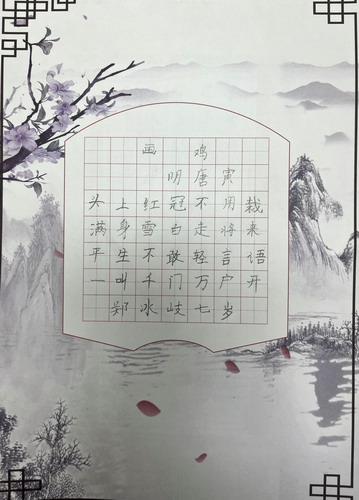 画鸡
明唐寅
头上红冠不用裁
满身雪白走将来
平生不敢轻言语
一叫千门万户开
郑冰岐七岁